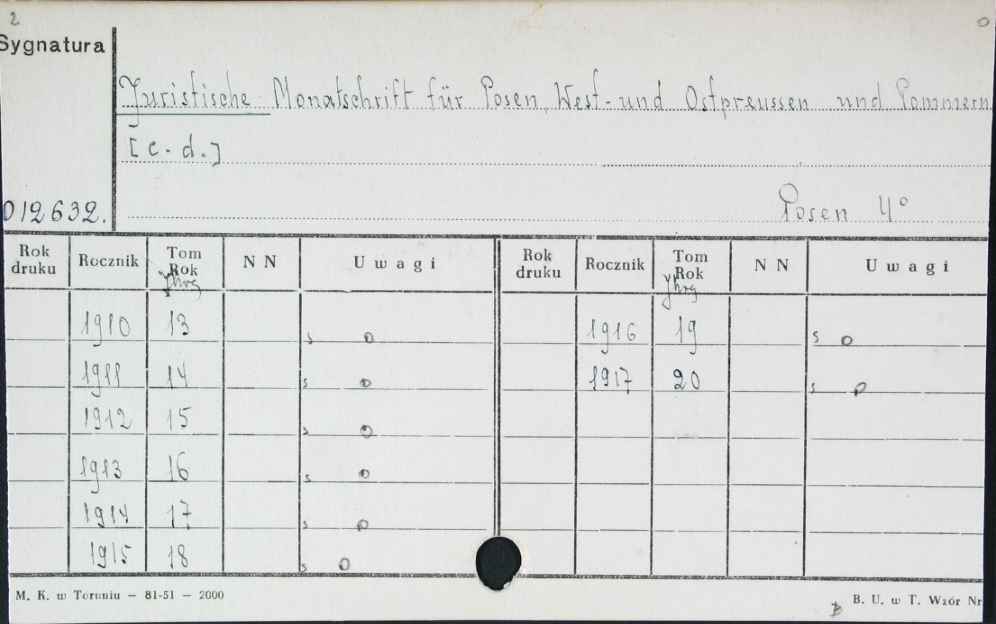 2
o
Sygnatura
Juristische Monatschrift für Posen, West- und Ostpreussen und Pommern
[c. d.]
012632.
Posen 4°
Rok druku Rocznik Tom Rok Jhrg N N Uwagi Rok druku Rocznik Tom Rok Jhrg N N Uwagi
1910 13 s o 1916 19 s o
1911 14 s o 1917 20 s o
1912 15 s o
1913 16 s o
1914 17 s o
1915 18 s o
M. K. w Toruniu — 81-51 — 2000
B. U. w T. Wzór Nr